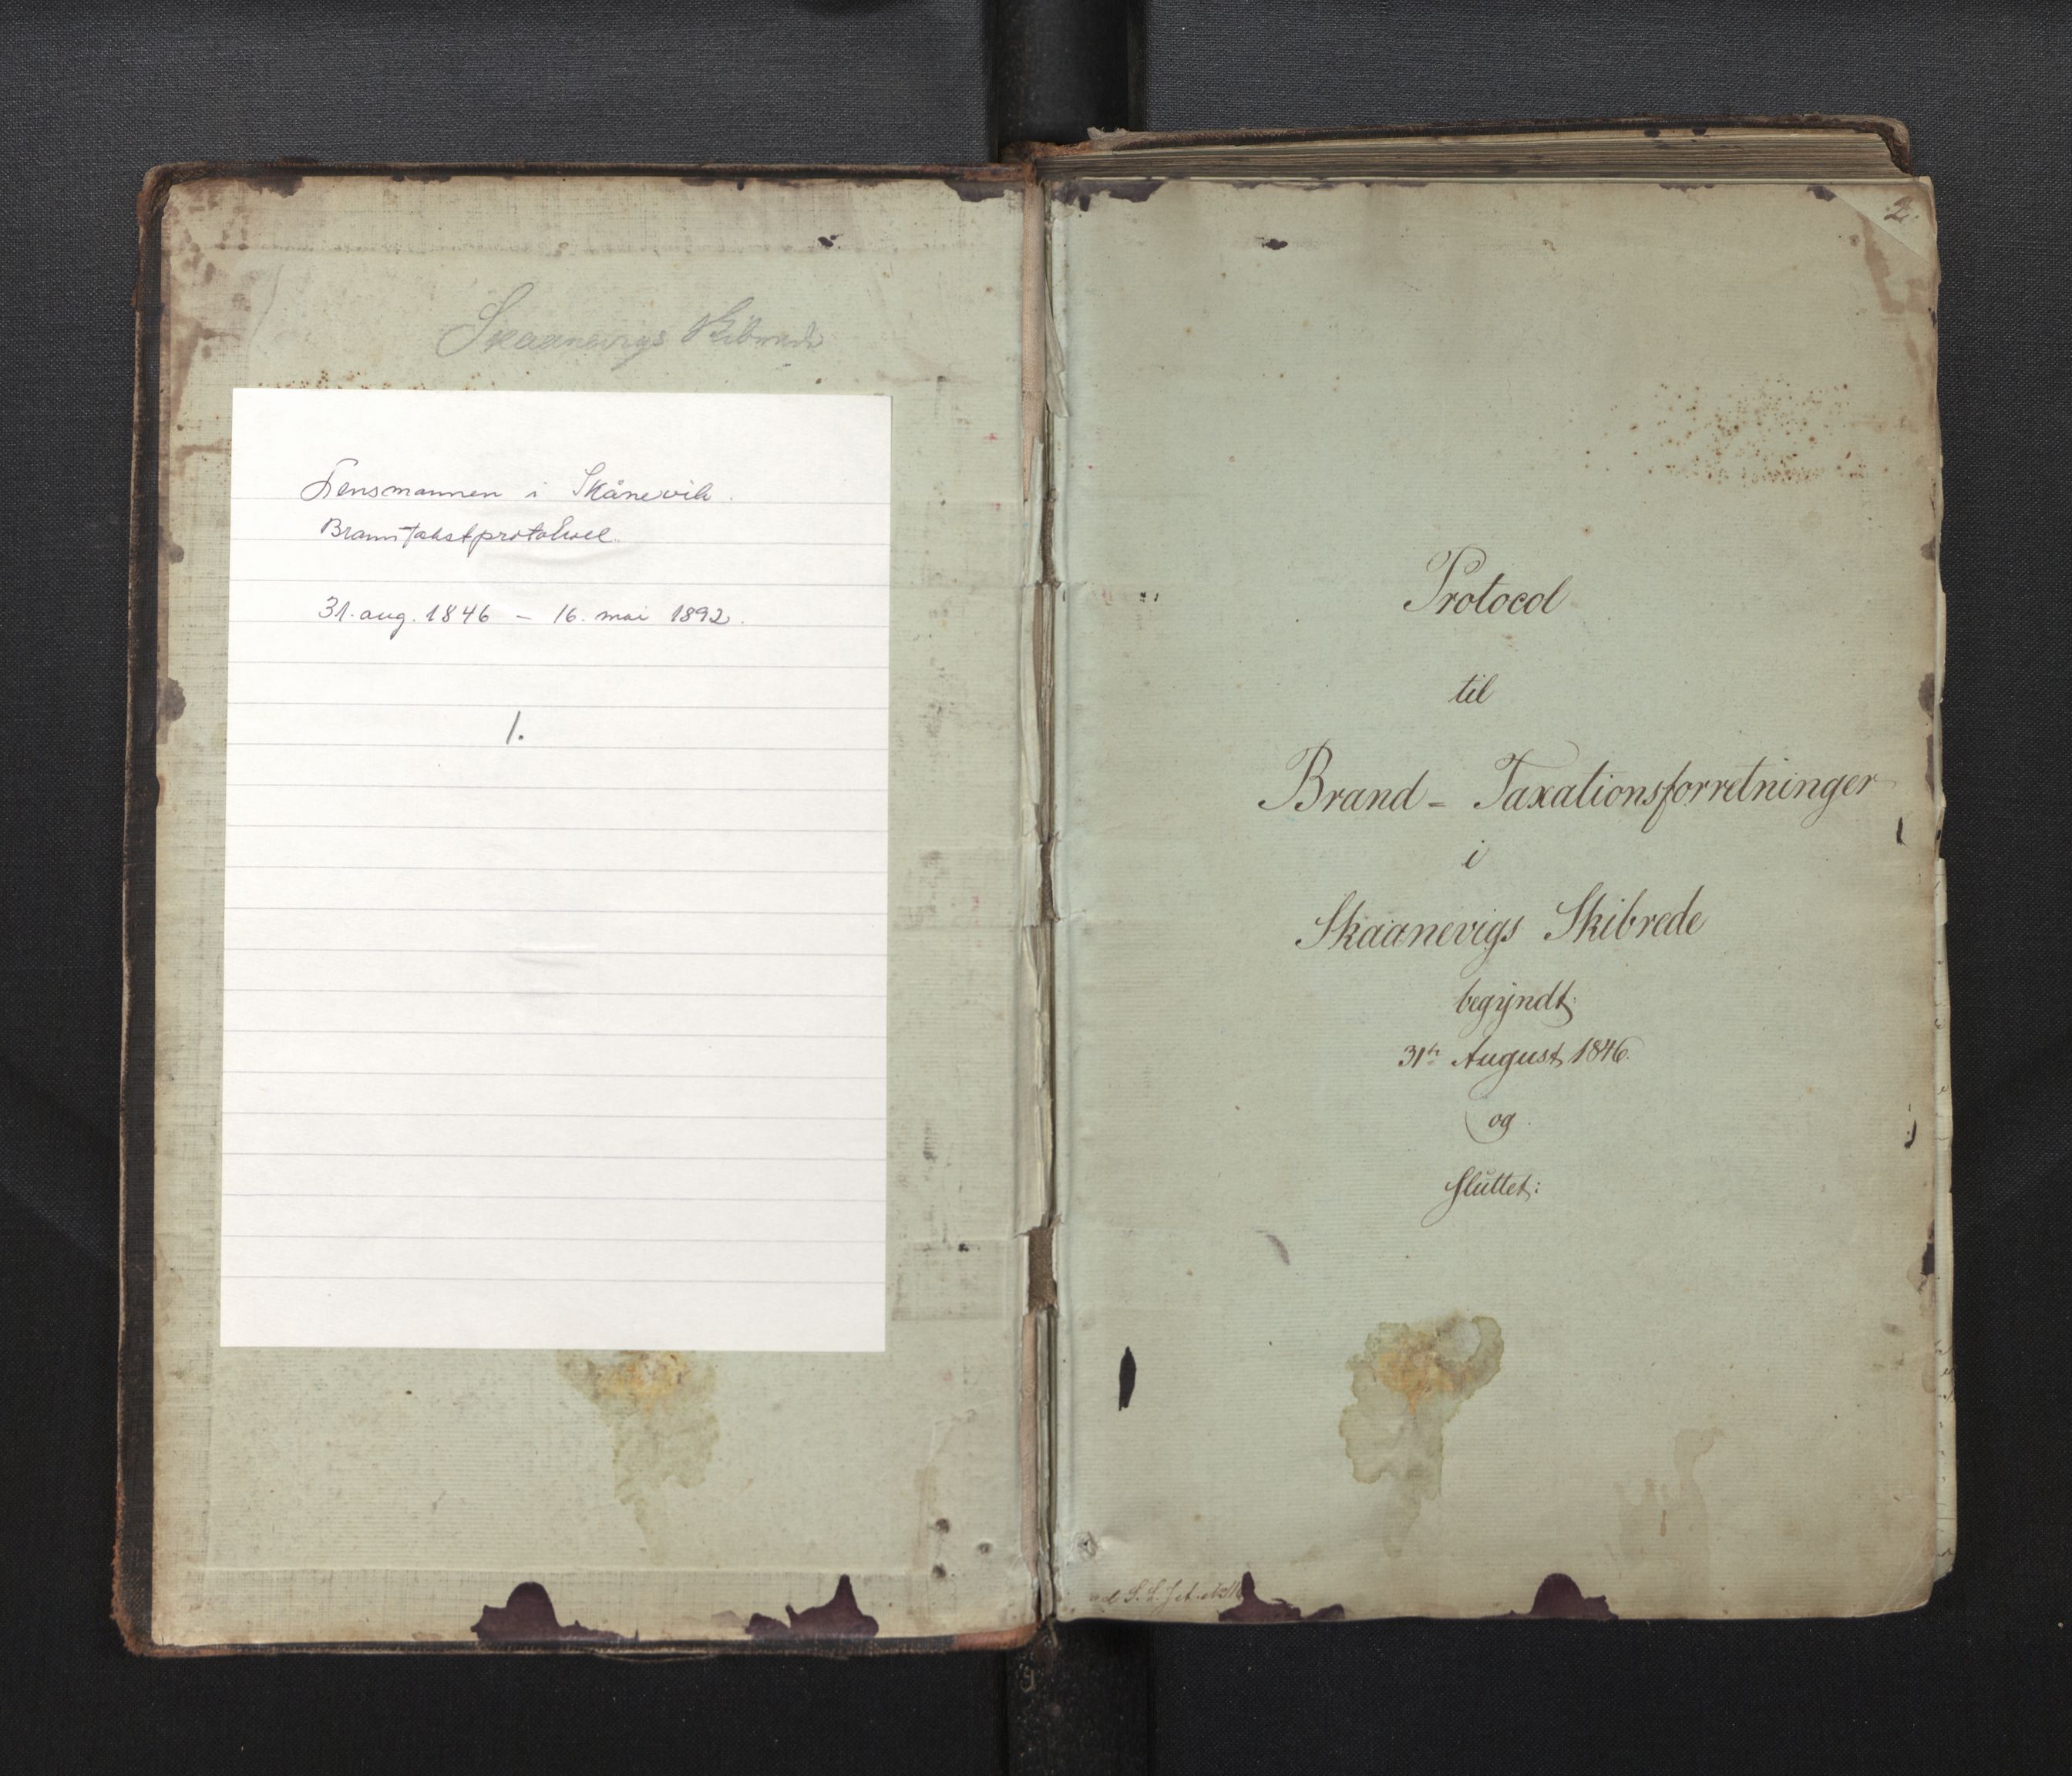 Skaanevigs Skibrede
Lensmannen i Skånevik.
Branntakstprotokoll.
31. aug. 1846 – 16. mai 1892.
1.
2.
Protocol
til
Brand - Taxationsforretninger
i
Skaanevigs Skibrede
begyndt
31te August 1846.
og
sluttet: